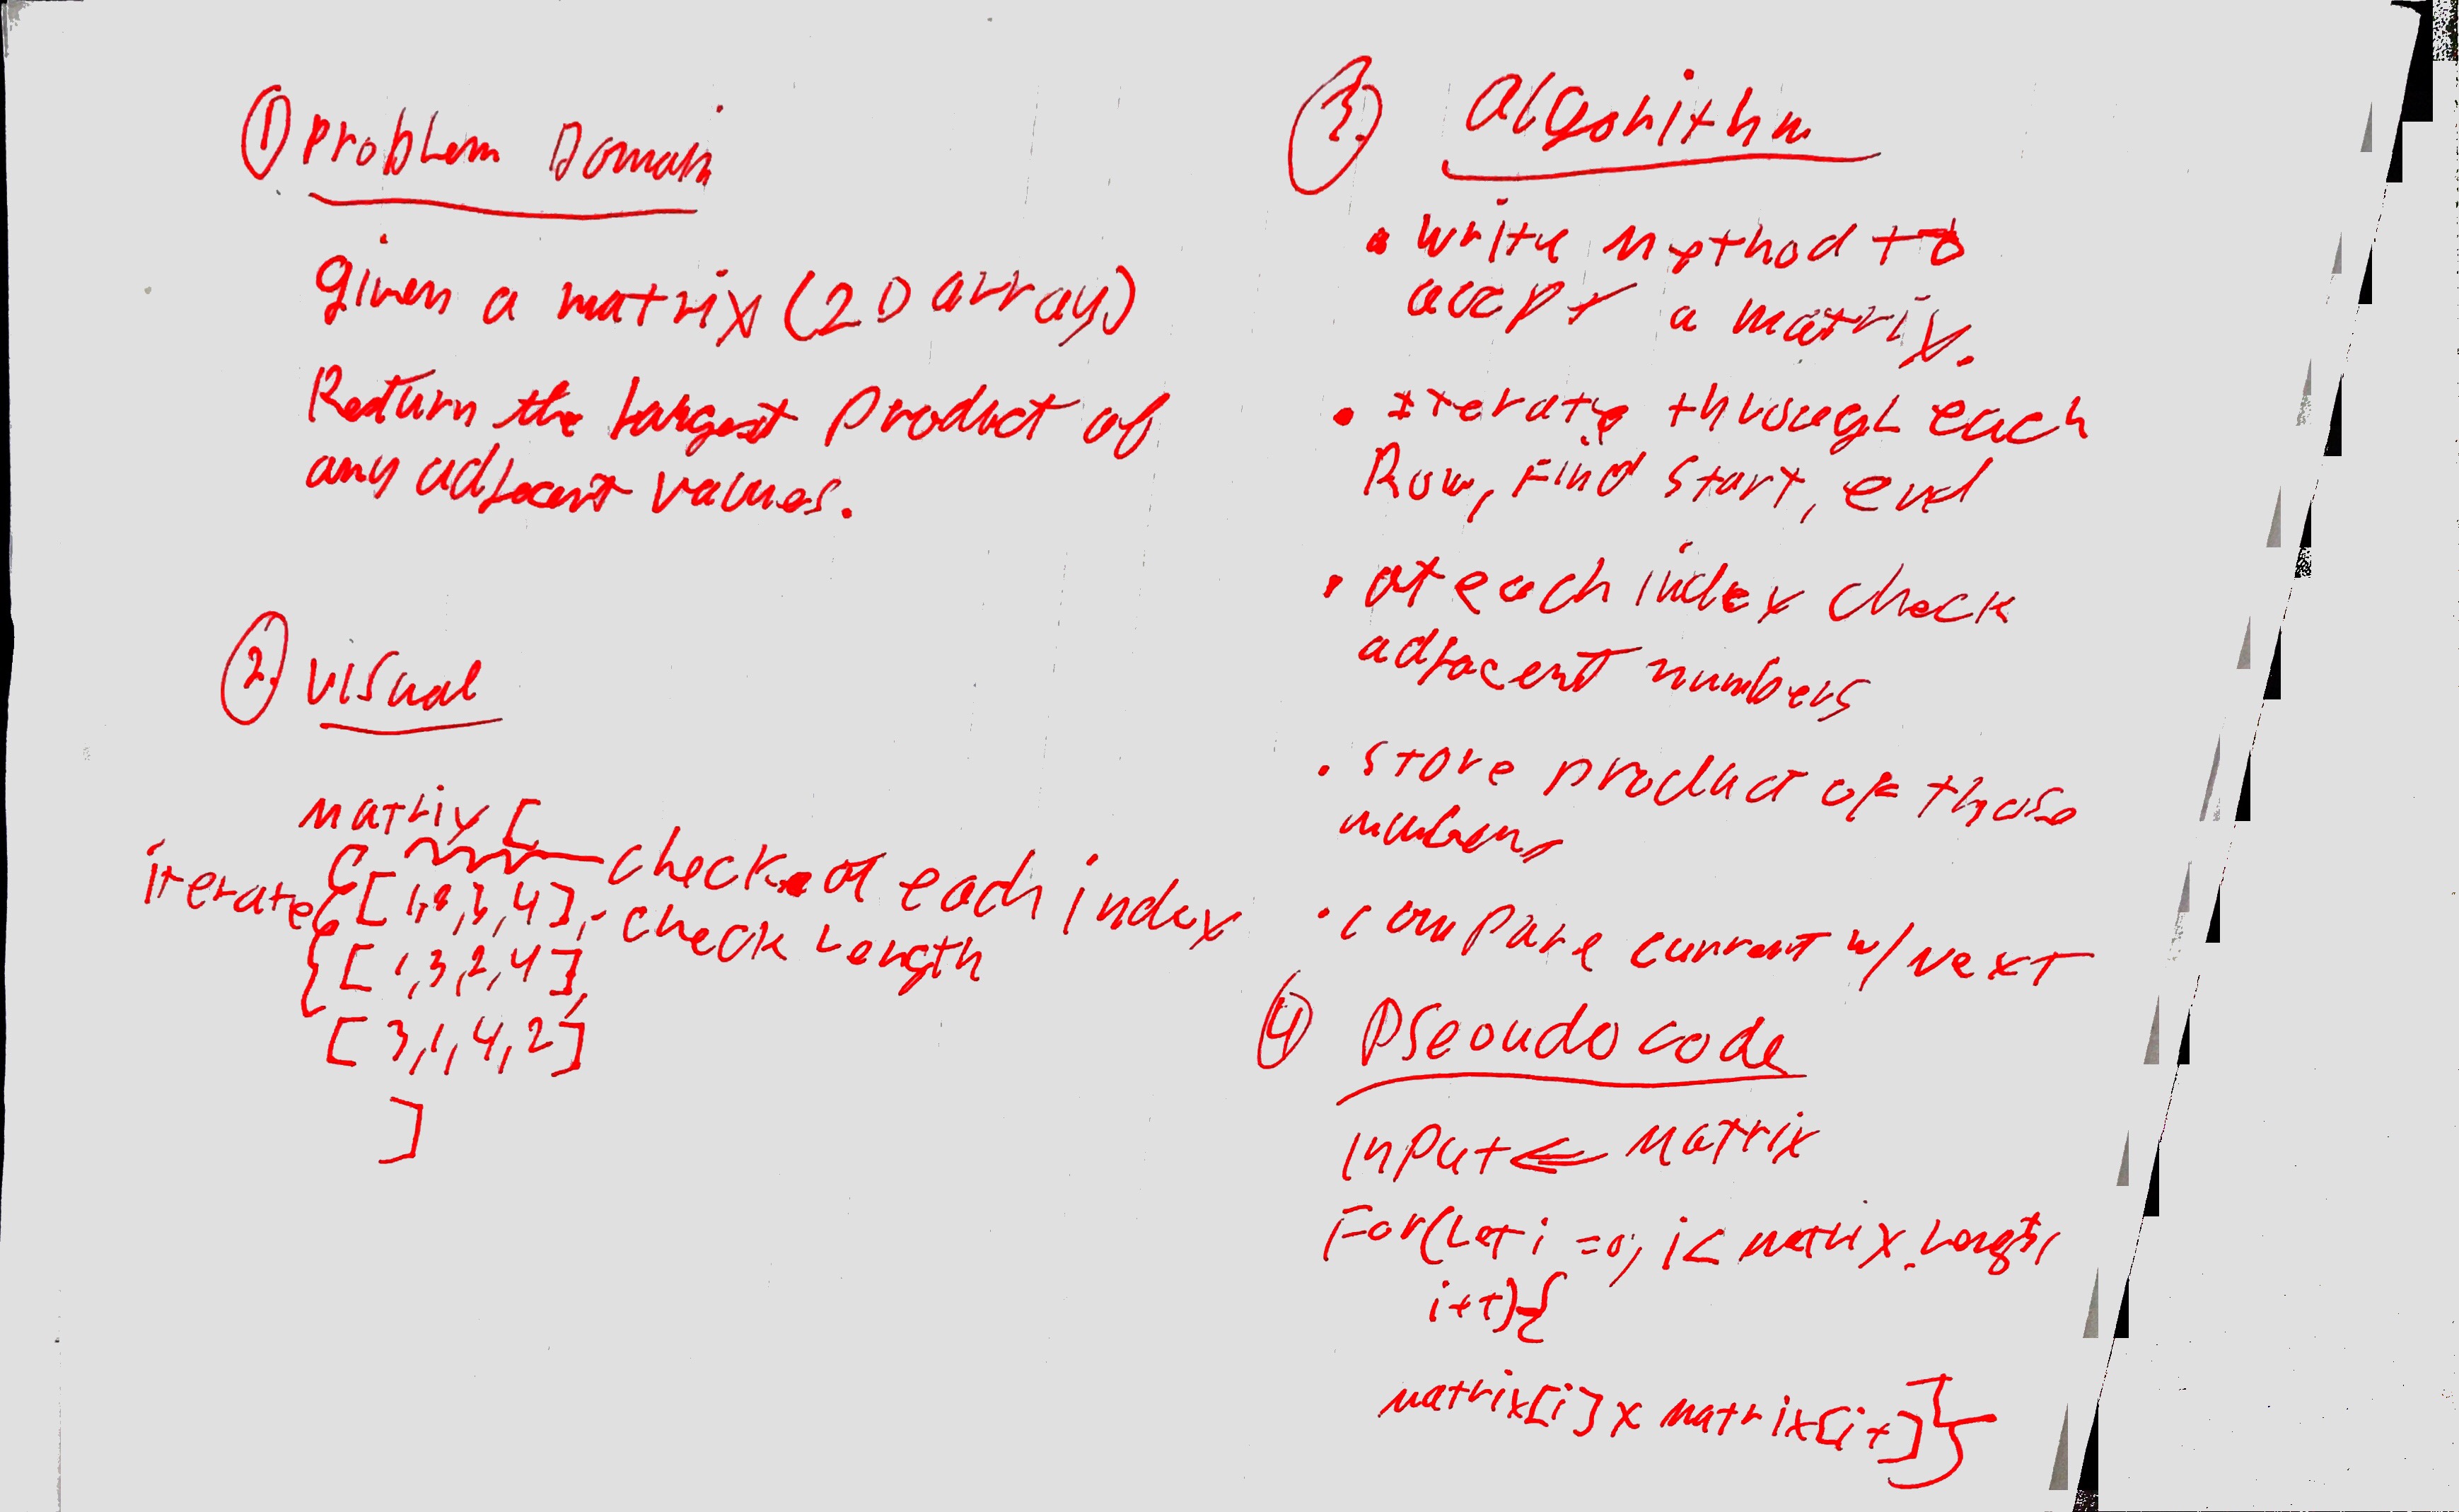 ① Problem Domain
given a matrix (2D array)
Return the largest product of
any adjacent values.
② visual
matrix [
iterate { [ 1, 2, 3, 4 ], - check at each index
check length
[ 1, 3, 2, 4 ],
[ 3, 1, 4, 2 ]
]
③ algorithm
• write method to
accept a matrix.
• iterate through each
Row, Find start, end
• at each index check
adjacent numbers
• store product of those
numbers
• compare current w/ next
④ Pseoudo code
input <= matrix
For(Let i = 0; i < matrix.length,
i++){
matrix[i] x matrix[i+]}